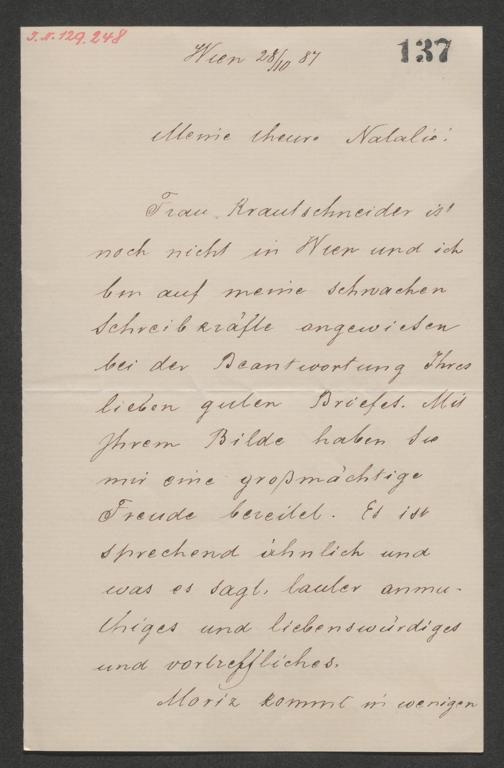 J.N. 129.248
Wien 28/10 87
137
Meine theure Natalie!
Frau Krautschneider ist
noch nicht in Wien und ich
bin auf meine schwachen
Schreibkräfte angewiesen
bei der Beantwortung Ihres
lieben guten Briefes. Mit
Ihrem Bilde haben Sie
mir eine großmächtige
Freude bereitet. Es ist
sprechend ähnlich und
was es sagt, lauter anmu-
thiges und liebenswürdiges
und vortreffliches.
Moriz kommt in wenigen